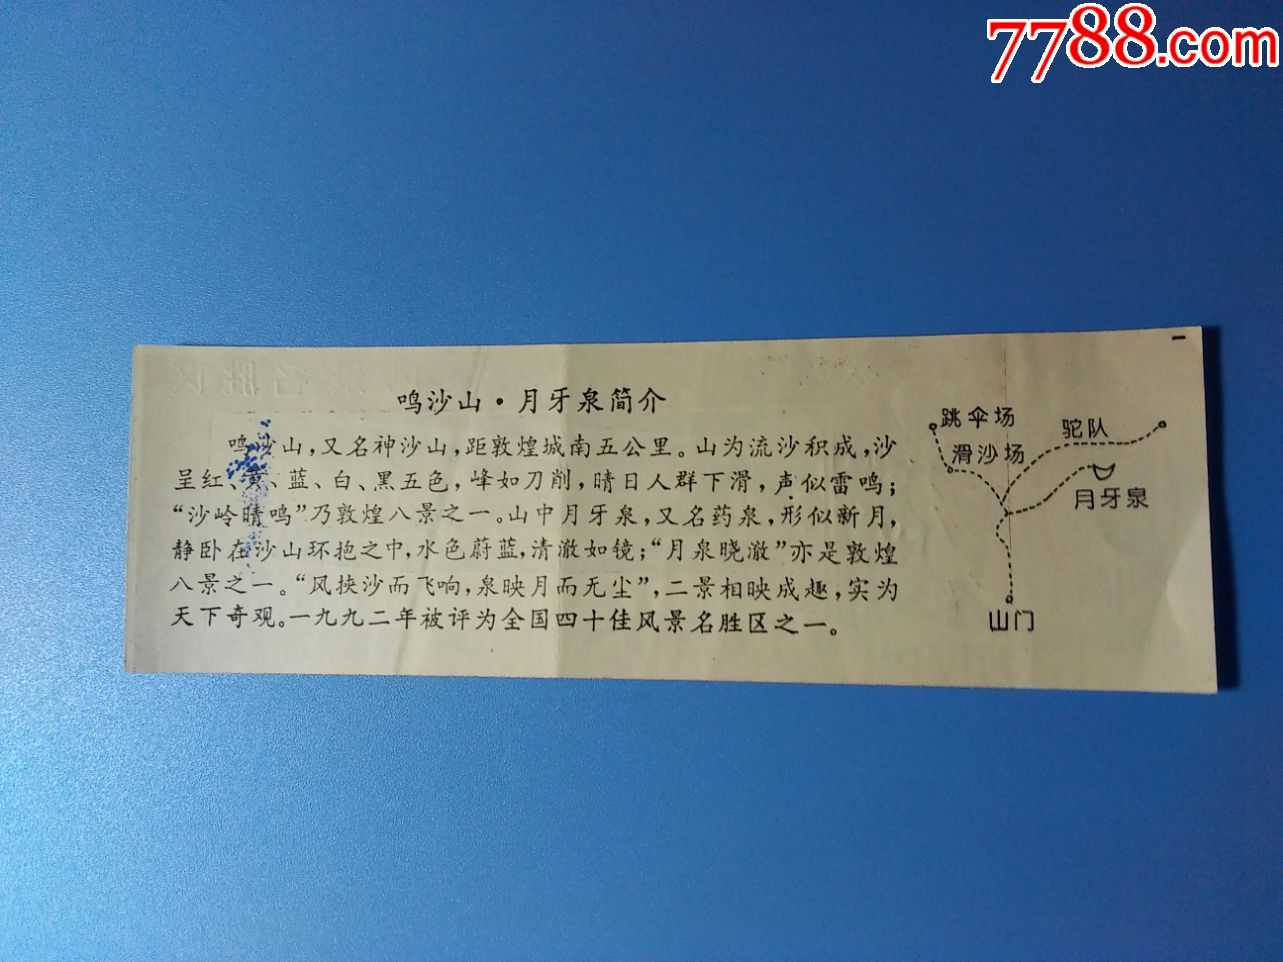 7788.com
鸣沙山·月牙泉简介
鸣沙山，又名神沙山，距敦煌城南五公里。山为流沙积成，沙
呈红、黄、蓝、白、黑五色，峰如刀削，晴日人群下滑，声似雷鸣；
“沙岭晴鸣”乃敦煌八景之一。山中月牙泉，又名药泉，形似新月，
静卧在沙山环抱之中，水色蔚蓝，清澈如镜；“月泉晓澈”亦是敦煌
八景之一。“风挟沙而飞响，泉映月而无尘”，二景相映成趣，实为
天下奇观。一九九二年被评为全国四十佳风景名胜区之一。
跳伞场
驼队
滑沙场
月牙泉
山门